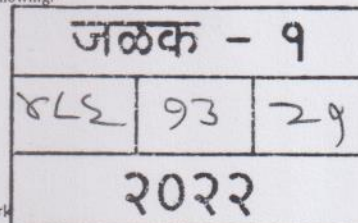 जळक - १
४८६ १३ २१
२०२२